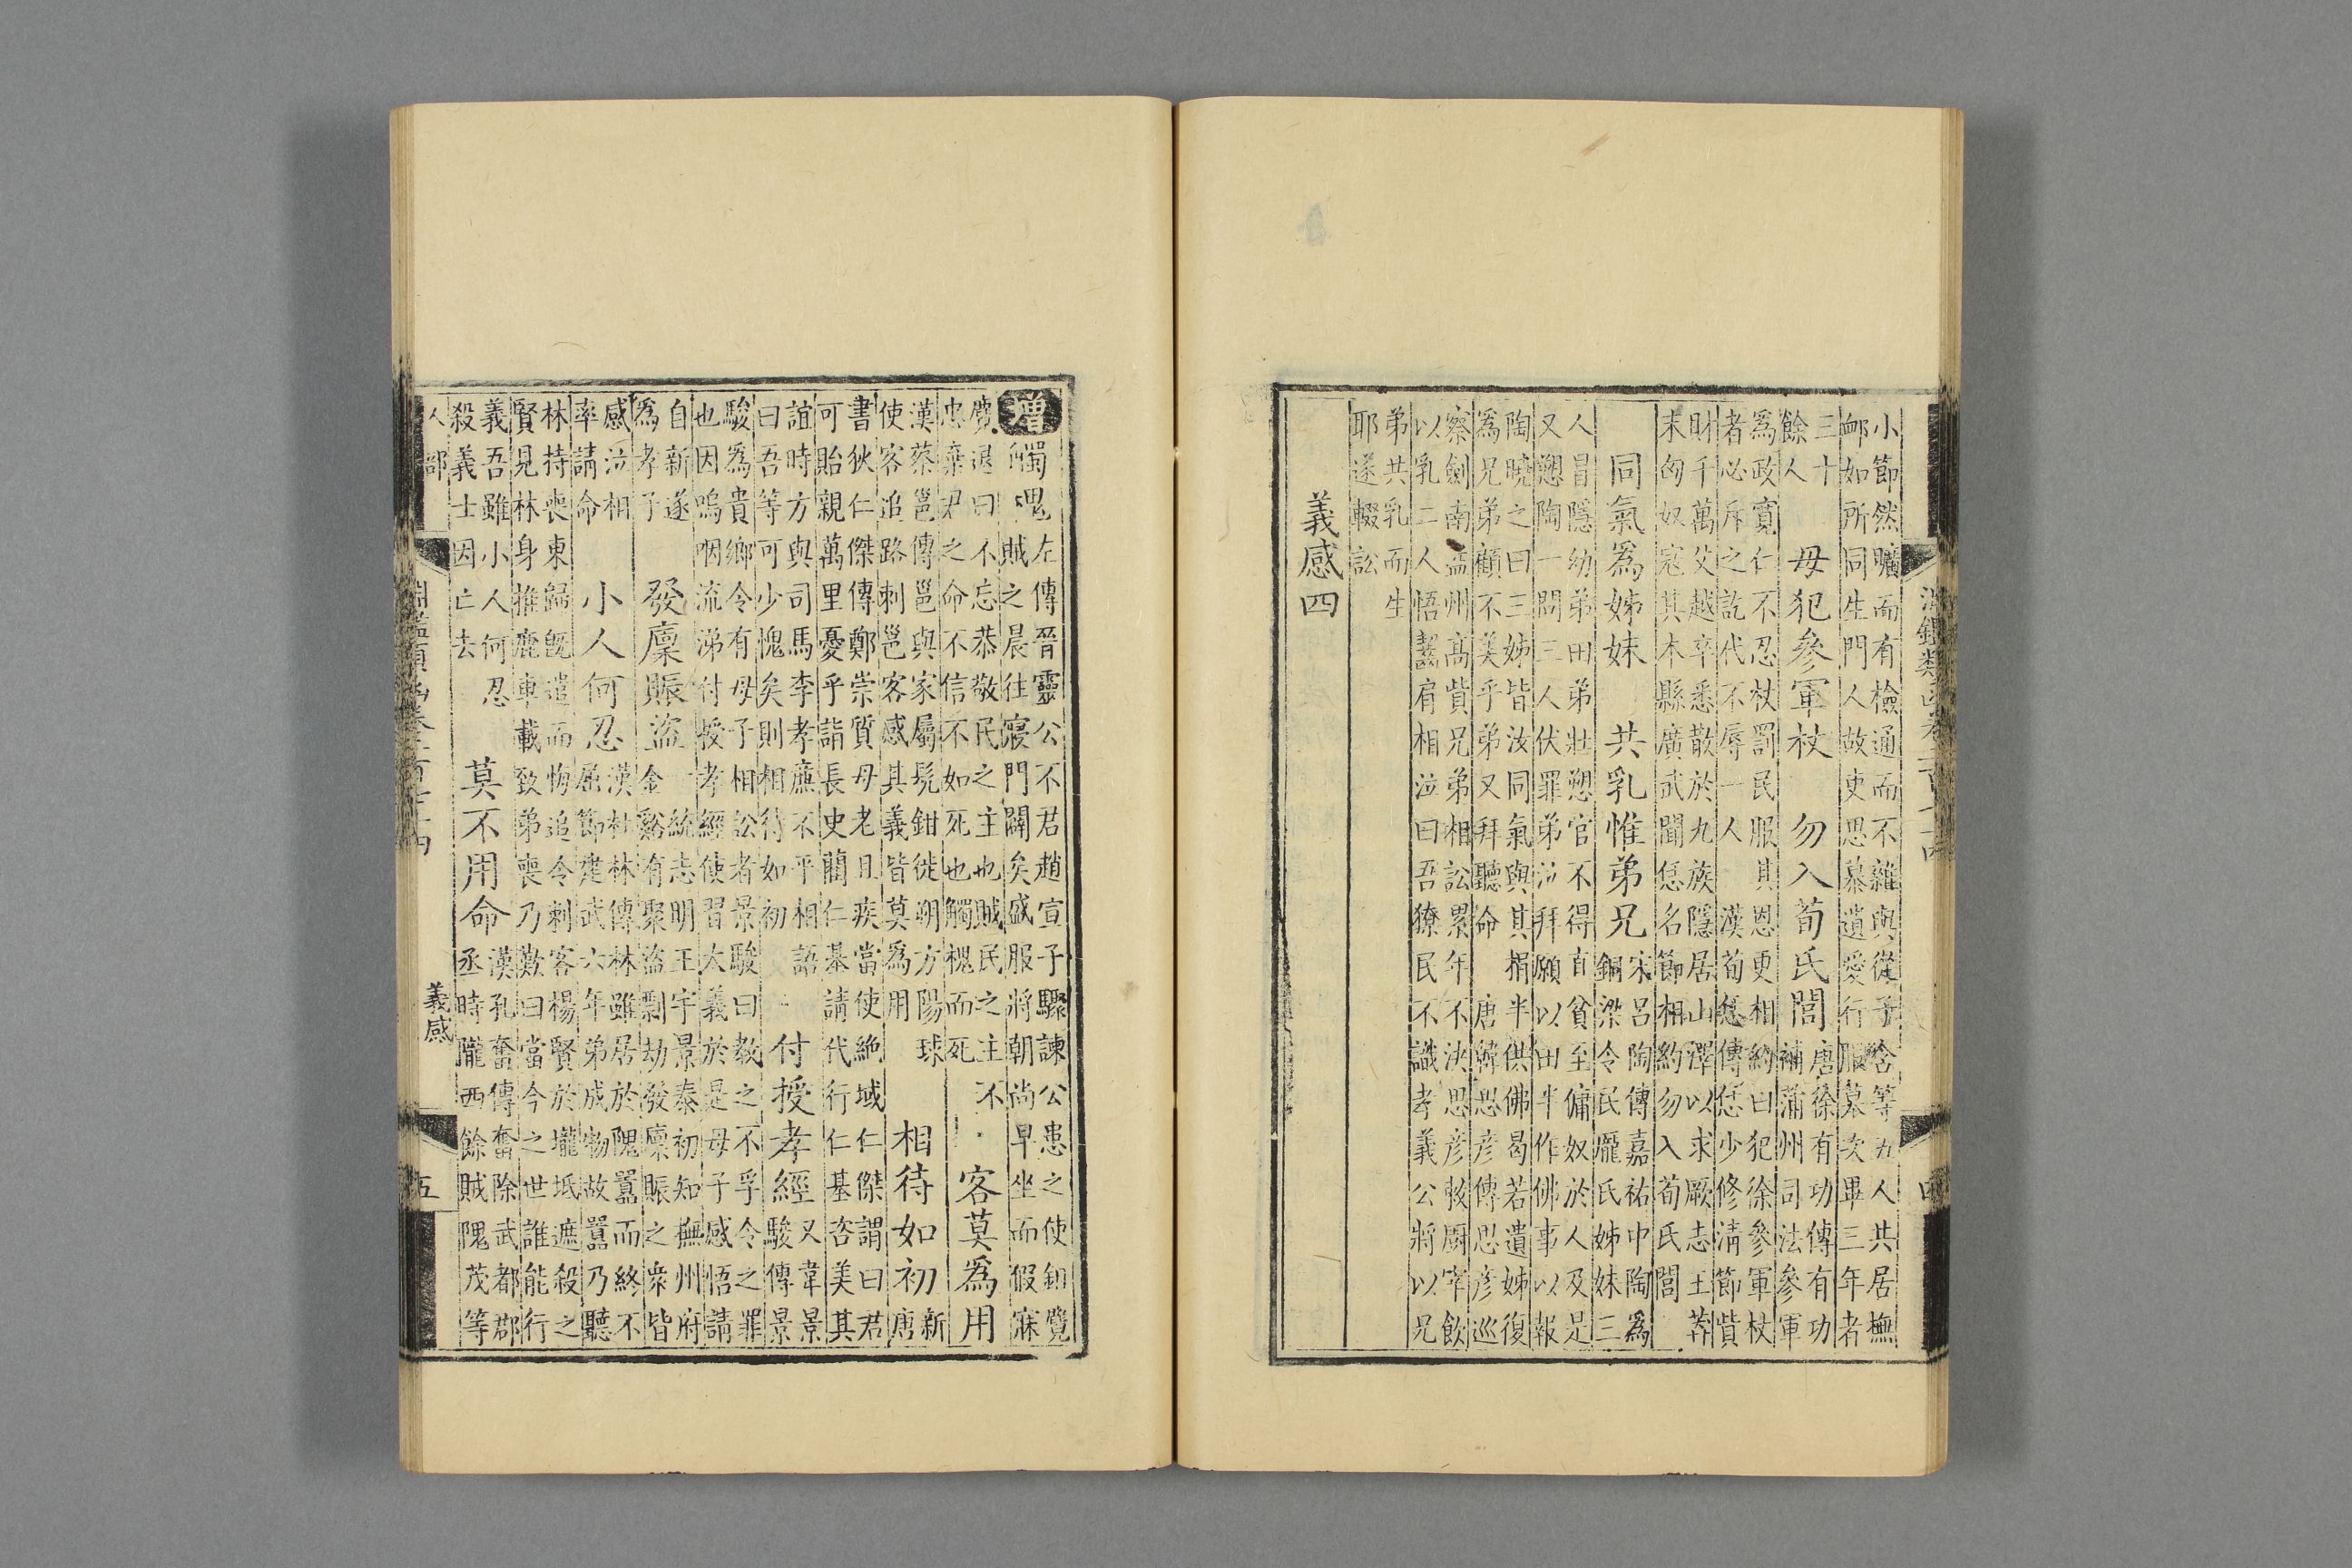 小節然曠而有檢通而不雜與從子含等五人共居撫
卹如所同生門人故吏思慕遺愛行服墓次畢三年者
三十
餘人
母犯參軍杖　勿入荀氏閭
唐徐有功傳有功
補蒲州司法參軍
爲政寬仁不忍杖罰民服其恩更相約曰犯徐參軍杖
者必斥之訖代不辱一人　漢荀恁傳恁少修淸節貲
財千萬父越卒悉散於九族隱居山澤以求厥志王莽
末匈奴寇其本縣廣武聞恁名節相約勿入荀氏閭
同氣爲姊妹　共乳惟弟兄
宋呂陶傳嘉祐中陶爲
銅梁令民龐氏姊妹三
人冒隱幼弟田弟壯愬官不得直貧至傭奴於人及是
又愬陶一問三人伏罪弟泣拜願以田半作佛事以報
陶曉之曰三姊皆汝同氣與其捐半供佛曷若遺姊復
爲兄弟顧不美乎弟又拜聽命　唐韓思彦傳思彦巡
察劍南益州高貲兄弟相訟累年不決思彦敕廚宰飲
以乳二人悟齧肩相泣曰吾獠民不識孝義公將以兄
弟共乳而生
耶遂輟訟
義感四
增 觸槐
左傳晉靈公不君趙宣子驟諫公患之使鉏麑
賊之晨往寢門闢矣盛服將朝尚早坐而假寐
麑退曰不忘恭敬民之主也賊民之主不
忠棄君之命不信不如死也觸槐而死
客莫爲用
漢蔡邕傳邕與家屬髡鉗徙朔方陽球
使客追路刺邕客感其義皆莫爲用
相待如初
新
唐
書狄仁傑傳鄭崇質母老且疾當使絶域仁傑謂曰君
可貽親萬里憂乎詣長史藺仁基請代行仁基咨美其
誼時方與司馬李孝廉不平相語
曰吾等可少愧矣則相待如初
付授孝經
又韋景
駿傳景
駿爲貴鄉令有母子相訟者景駿曰教之不孚令之罪
也因嗚咽流涕付授孝經使習大義於是母子感悟請
自新遂
爲孝子
發廩賑盜
一統志明王宇景泰初知撫州府
金谿有聚盜剽劫發廩賑之衆皆
感泣相
率請命
小人何忍
漢杜林傳林雖居於隗囂而終不
屈節建武六年弟成物故囂乃聽
林持喪東歸旣遣而悔追令刺客楊賢於隴坻遮殺之
賢見林身推鹿車載致弟喪乃歎曰當今之世誰能行
義吾雖小人何忍
殺義士因亡去
莫不用命
漢孔奮傳奮除武都郡
丞時隴西餘賊隗茂等
人部
義感
五